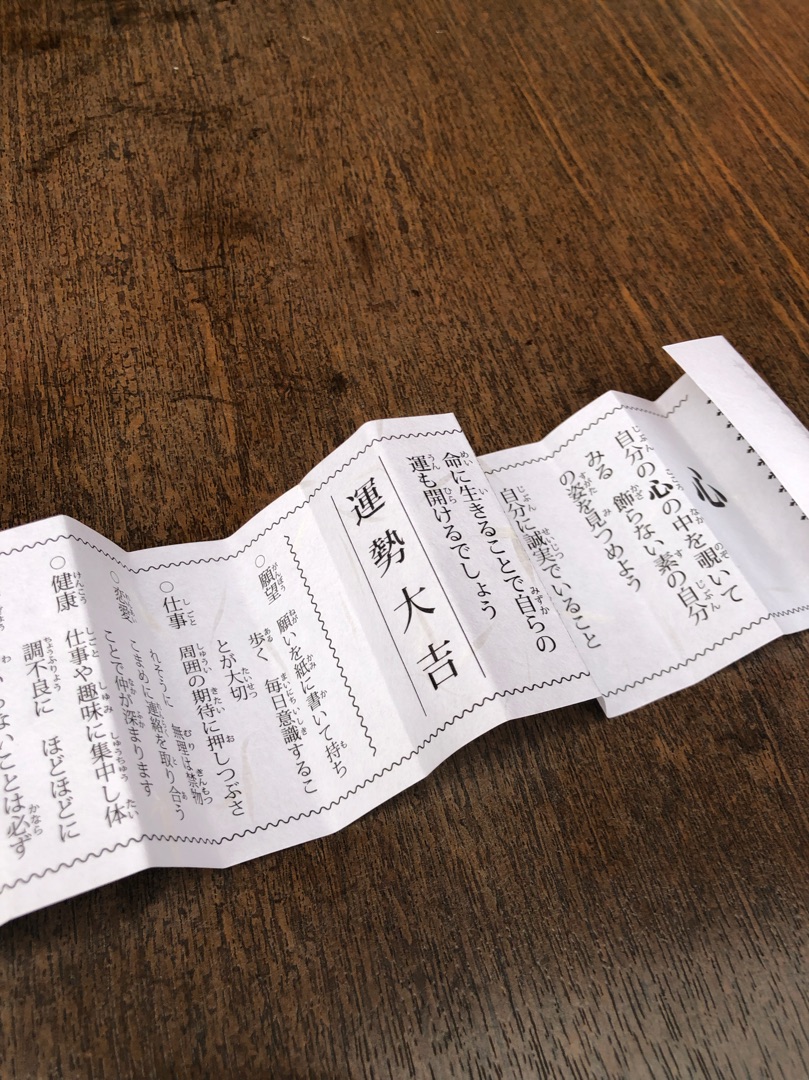 心
自分の心の中を覗いて
みる　飾らない素の自分
の姿を見つめよう
自分に誠実でいること
命に生きることで自らの
運も開けるでしょう
運勢大吉
○願望　願いを紙に書いて持ち
歩く　毎日意識するこ
とが大切
○仕事　周囲の期待に押しつぶさ
れそうに　無理は禁物
○恋愛　こまめに連絡を取り合う
ことで仲が深まります
○健康　仕事や趣味に集中し体
調不良に　ほどほどに
らないことは必ず